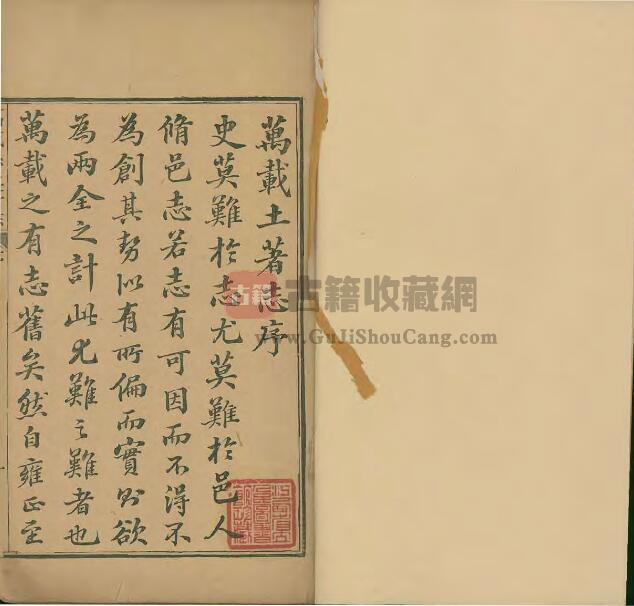 萬載土著志序
史莫難於志尤莫難於邑人
脩邑志若志有可因而不得不
為創其勢似有所偏而實則欲
為兩全之計此尤難之難者也
萬載之有志舊矣然自雍正至
古籍 古籍收藏網
www.GuJiShouCang.com